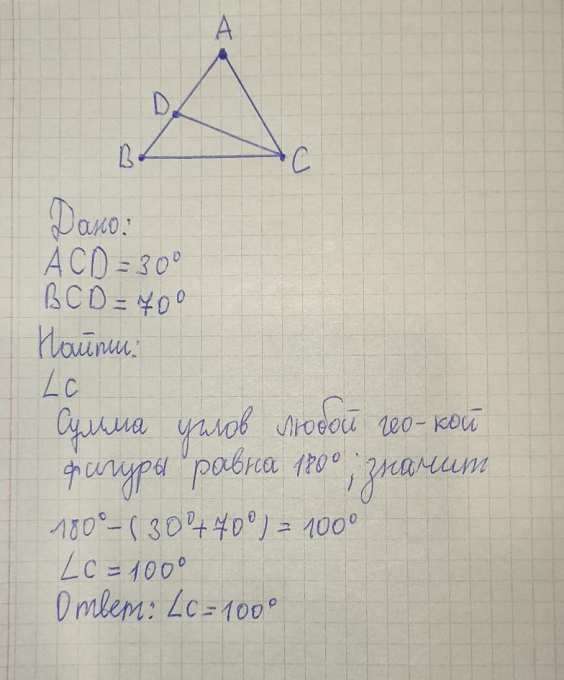 A
D
B
C
Дано:
ACD = 30°
BCD = 70°
Найти:
∠C
Сумма углов любой гео-кой
фигуры равна 180°, значит
180° - (30° + 70°) = 100°
∠C = 100°
Ответ: ∠C = 100°